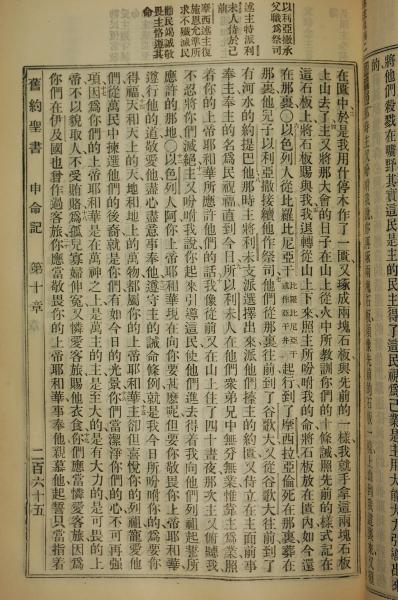 將他們殺戮在曠野其實這民是主的民主得了這民視爲己業這主用大能大力引導出來
的
以利亞撒承
父職爲祭司
述主特派利
未人侍於己
摩西述主復
施恩允準所
求不殲滅民
民竭誠敬
畏主恪遵其
命
在匱中於是我用什停木作了一匱又琢成兩塊石板與先前的一樣我就手拿這兩塊石板
上山去了主又將那大會的日子在山上從火中所教訓你們的十條誡照先前的樣式記在
這石板上將石板賜與我我退轉從山上下來照主所吩咐我的命將石板放在匱內如今還
在那裏○以色列人從比羅比尼亞干比羅比尼亞干或作亞干井起行到了摩西拉亞倫死在那裏葬在
那裏他兒子以利亞撒接續他作祭司他們從那裏往前到了谷歌大又從谷歌大往前到了
有河水的約提巴他那時主將利未支派選擇出來派他們擡主的約匱又侍立在主面前事
奉主奉主的名爲民祝福直到今日所以利未人在他們衆弟兄中無分無業惟靠主爲業照
着你的上帝耶和華所應許他們的話我像從前又在山上住了四十晝夜那次主又俯聽我
不忍將你們滅絕主又吩咐我說你起來引導這民使他們進去得着我向他們列祖起誓所
應許的那地○以色列人阿你上帝耶和華現在向你要甚麼呢但要你敬畏你上帝耶和華
遵行他的道敬愛他盡心盡意事奉他遵守主的誡命條例就是我今日所吩咐你的爲要你
得福天和天上的天地和地上的萬物都屬你的上帝耶和華主卻但喜悅你的列祖寵愛他
們從萬民中揀選他們的後裔就是你們有如今日的光景你們當潔淨你們的心不可再強
項因爲你們的上帝耶和華是在萬神之上是萬主的主是至大的是有大力的是可畏的上
帝不以貌取人不受賄賂爲孤兒寡婦伸冤又憐愛客旅賜他衣食你們應當憐愛客旅因爲
你們在伊及國也曾作過客旅你應當敬畏你的上帝耶和華事奉他親慕他起誓只當指着
舊約聖書 申命記 第十章 二百六十五